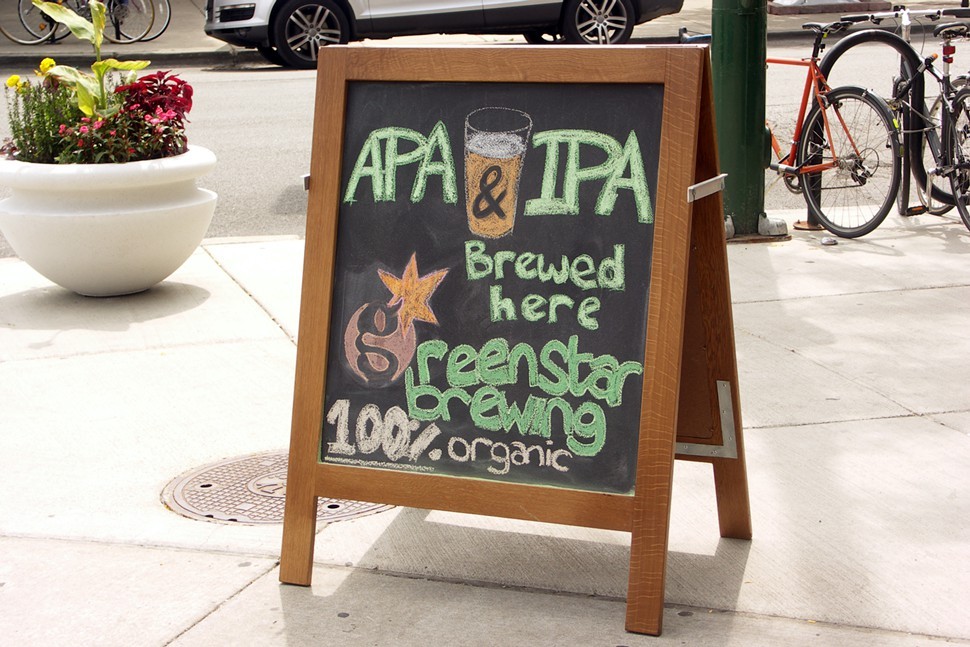 APA & IPA
Brewed
here
g
Greenstar
brewing
100% organic